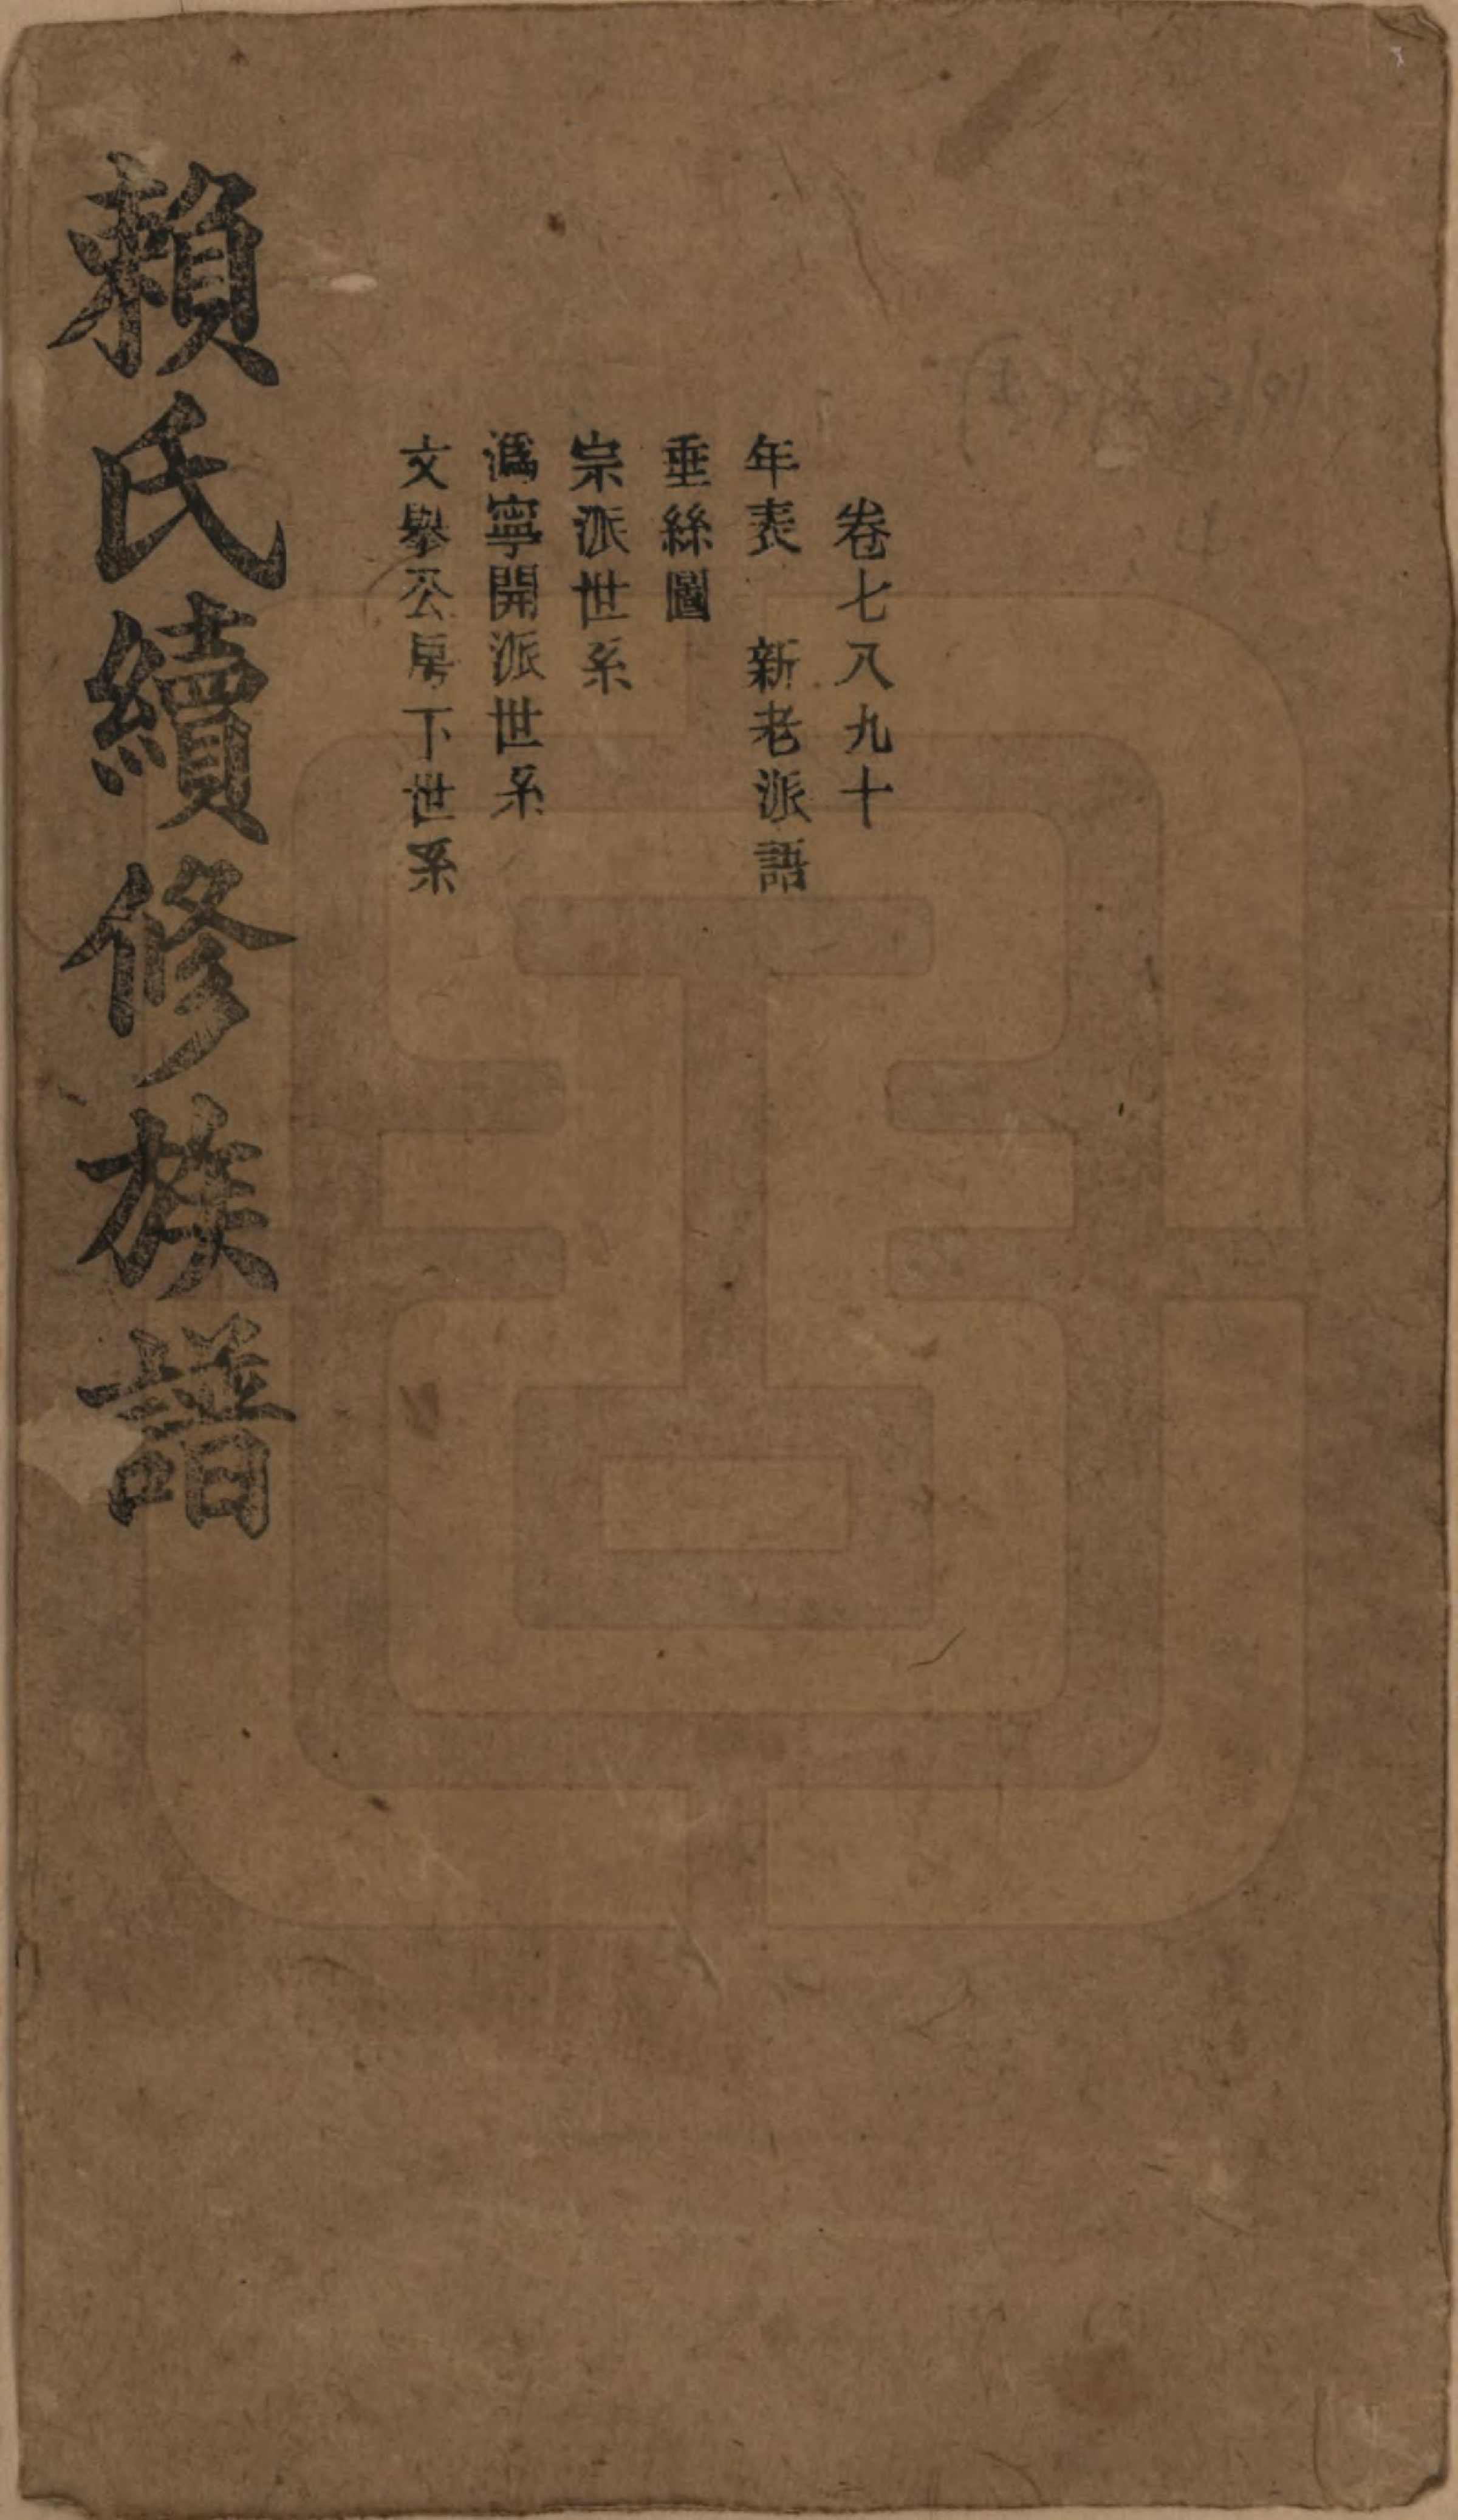 卷七八九十
年表　新老派語
垂絲圖
宗派世系
溈寧開派世系
文舉公房下世系
賴氏續修族譜